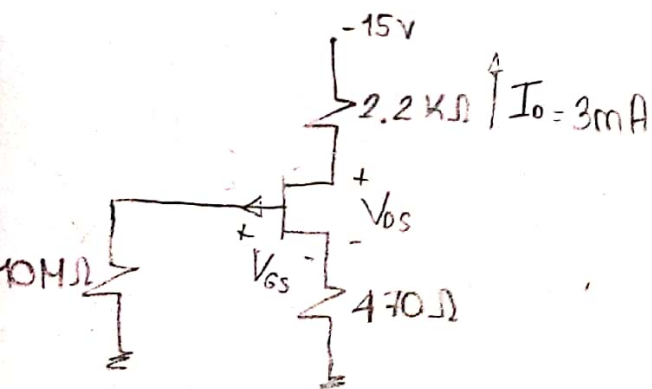 -15v
2.2 KΩ
I_D = 3mA
+
V_DS
-
+
V_GS
-
10MΩ
470Ω